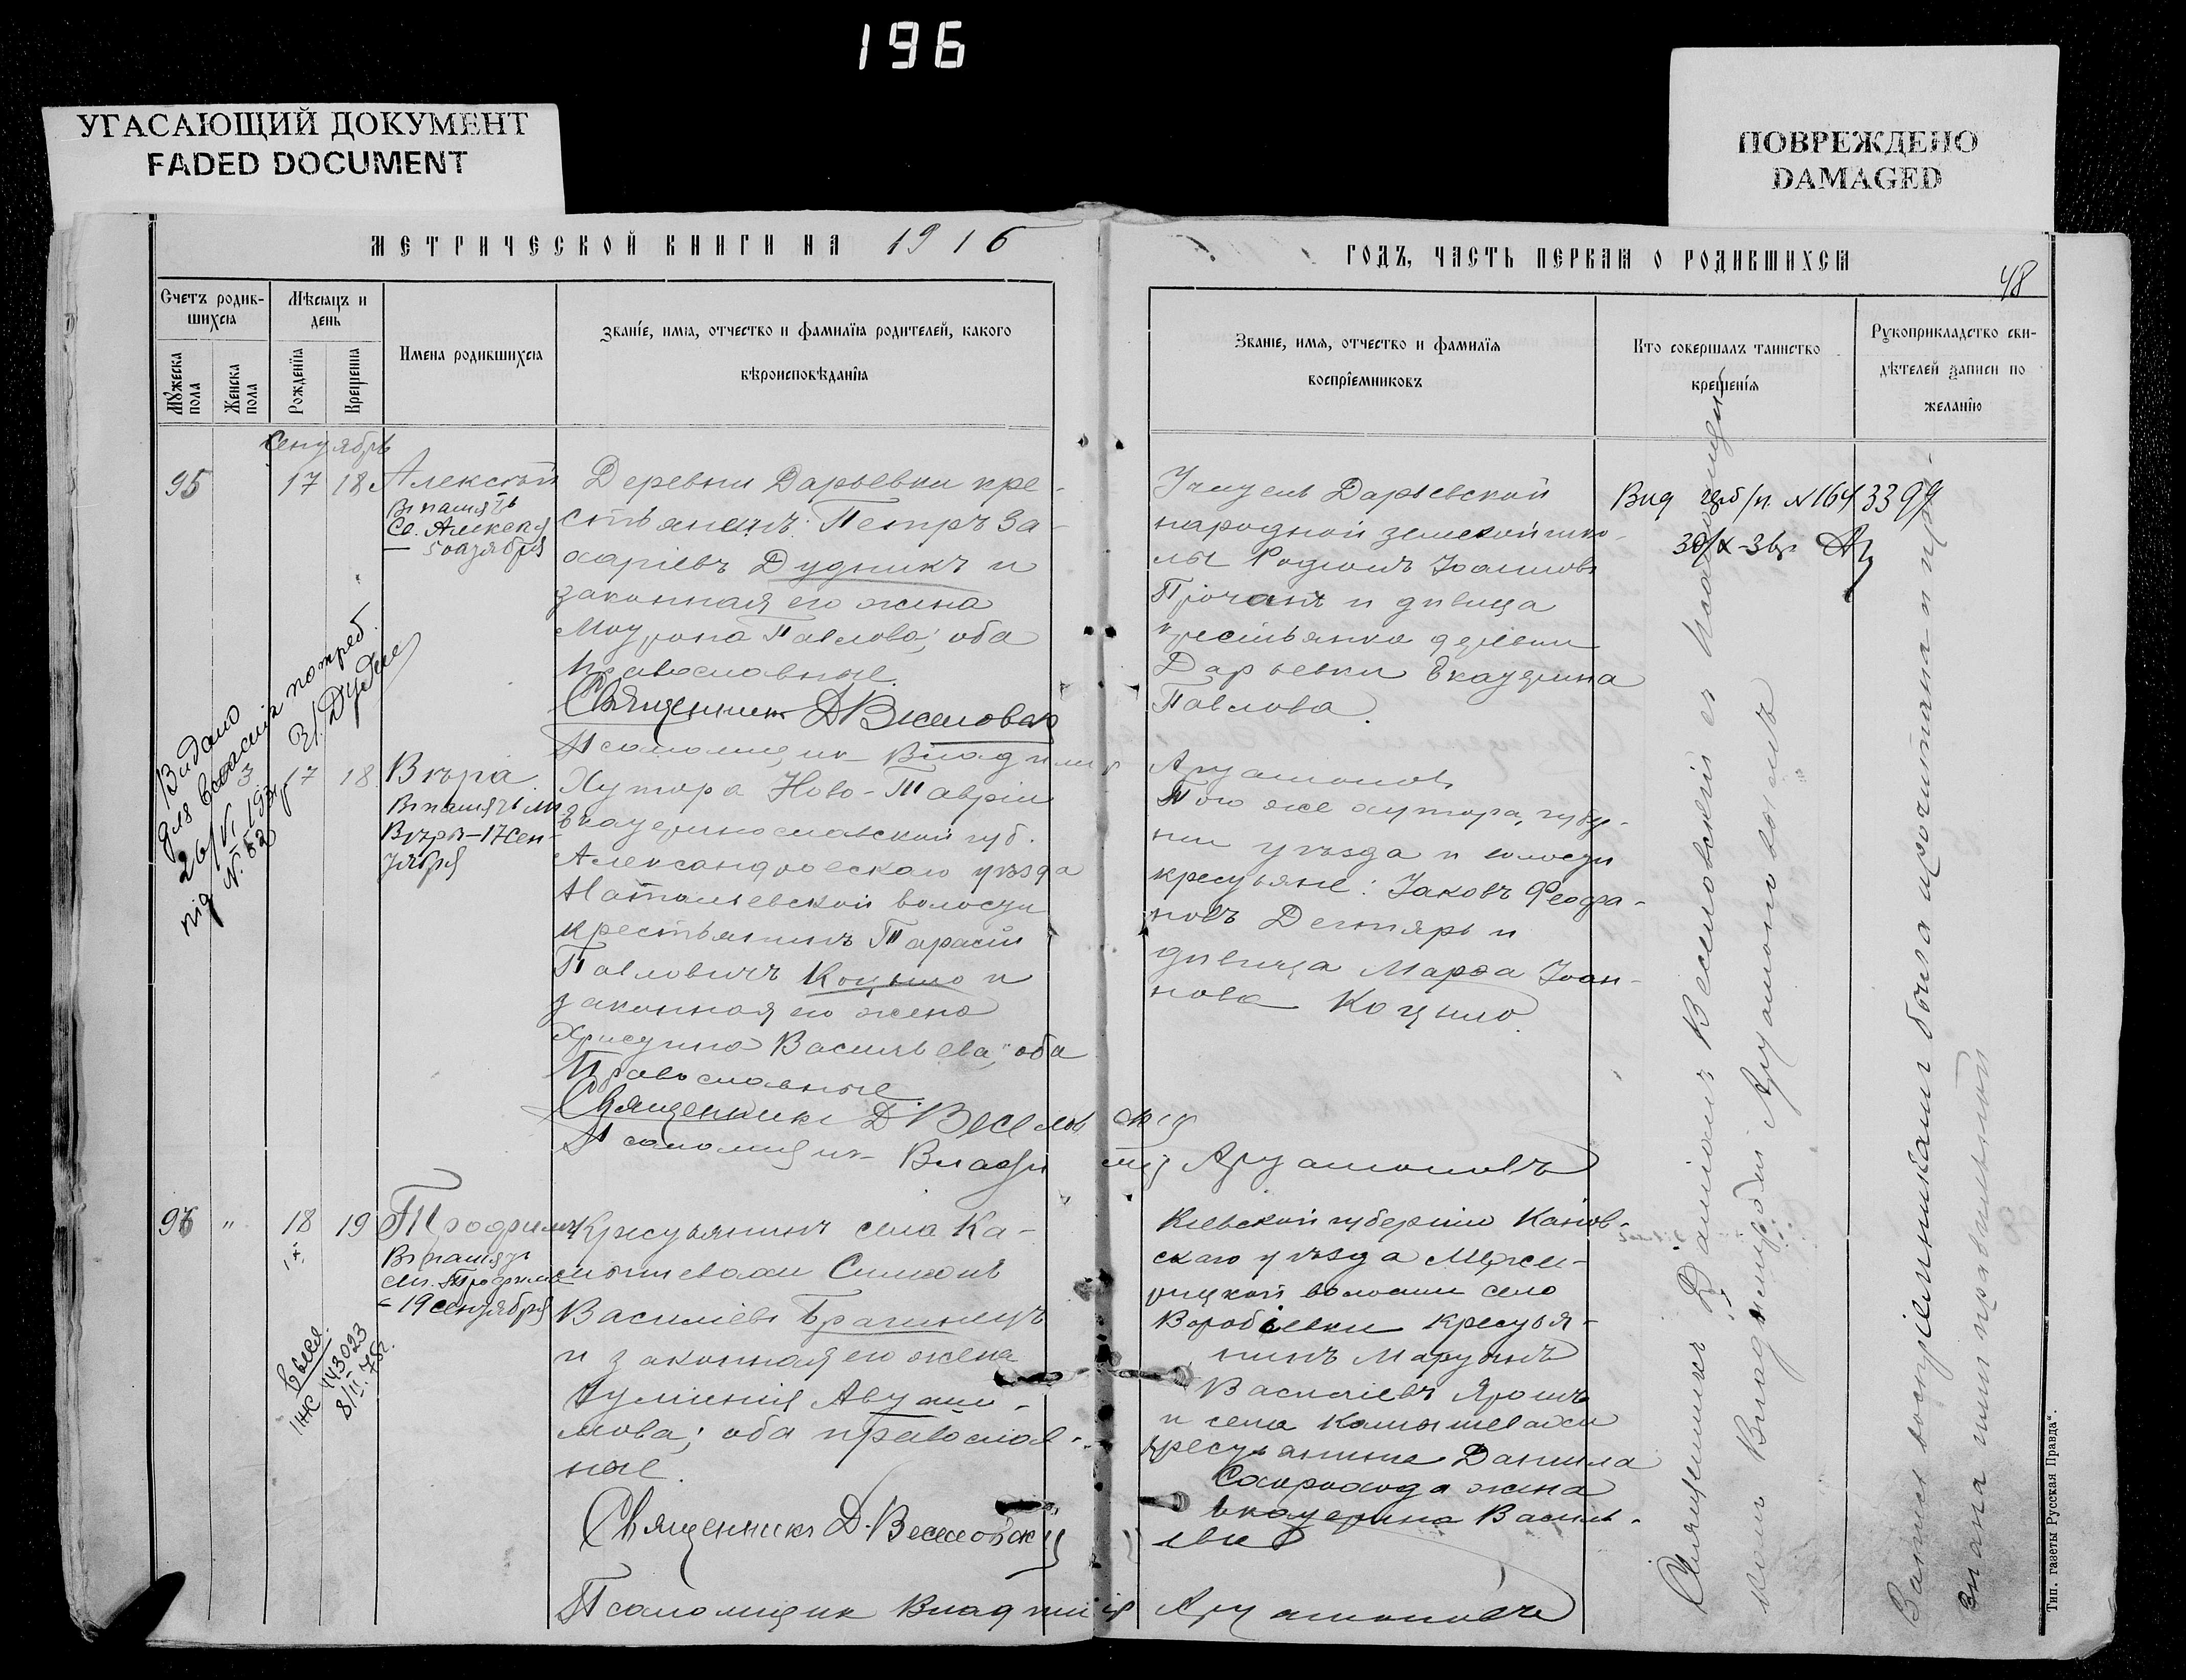 196
УГАСАЮЩИЙ ДОКУМЕНТ
FADED DOCUMENT
ПОВРЕЖДЕНО
DAMAGED
МЕТРИЧЕСКОЙ КНИГИ НА 1916
ГОДЪ, ЧАСТЬ ПЕРВАЯ О РОДИВШИХСЯ
48
Счетъ родив-
шихся
Мужеска
пола
Женска
пола
Мѣсяцъ и
день
Рожденїя
Крещенїя
Имена родившихся
Званїе, имя, отчество и фамилїя родителей, какого
вѣроисповѣданїя
Званїе, имя, отчество и фамилїя
воспрїемниковъ
Кто совершалъ таинство
крещенїя
Рукоприкладство сви-
дѣтелей записи по
желанїю
Сентябрь
95 17 18 Алексѣй
Въ память
Св. Алексѣя
— 5 октября
Деревни Дарьевки кре-
стьянинъ: Петръ За-
харіевъ Дудникъ и
законная его жена
Павлова; оба
православные.
Священникъ Д Веселовскій
Псаломщик Владимір Артамоновъ
Учитель Дарьевской
народной земской шко-
лы Родіонъ Іоанновъ
и дѣвица
крестьянка деревни
Дарьевки Екатерина
Павлова.
Вид № 164339
Видано
для потреб
26/VI 193
під N. 62
3 17 18 Вѣра
Въ память мц
Вѣры – 17 сен-
тября
Хутора Ново-Тавріи
Екатеринославской губ.
Александровскаго уѣзда
Натальевской волости
крестьянинъ Тарасій
Павловичъ Коцыло и
законная его жена
Христина Васильева; оба
Православные
Священникъ Д Веселовскій
Псаломщик Владимір Артамоновъ
Того же хутора, губер-
ніи уѣзда и волости
крестьяне: Іаковъ Феофа-
новъ Дегтярь и
дѣвица Марѳа Іоан-
нова Коцыло.
96 " 18 19 Трофимъ
Въ память
мч. Трофима
– 19 сентября
443023
8/II 78г.
Крестьянинъ села Ка-
мышевахи Симеонъ
Василіевъ Брагинецъ
и законная его жена
Евѳимія Автоно-
мова; оба православ-
ные.
Священникъ Д. Веселовскій
Псаломщик Владимір Артамоновъ
Кіевской губерніи Канев-
скаго уѣзда Межи-
рицкой волости село
Воробіевки крестья-
нинъ Мартинъ
Василіевъ Ярошъ
и села Камышевахи
крестьянина Даніила
жена
Екатерина Василь-
ева
Священникъ Даніилъ Веселовскій съ псаломщи-
комъ Владиміромъ Артамоновымъ
Запись воспріемниками была прочитана и при-
знана ими правильной
Тип. газеты „Русская Правда“.